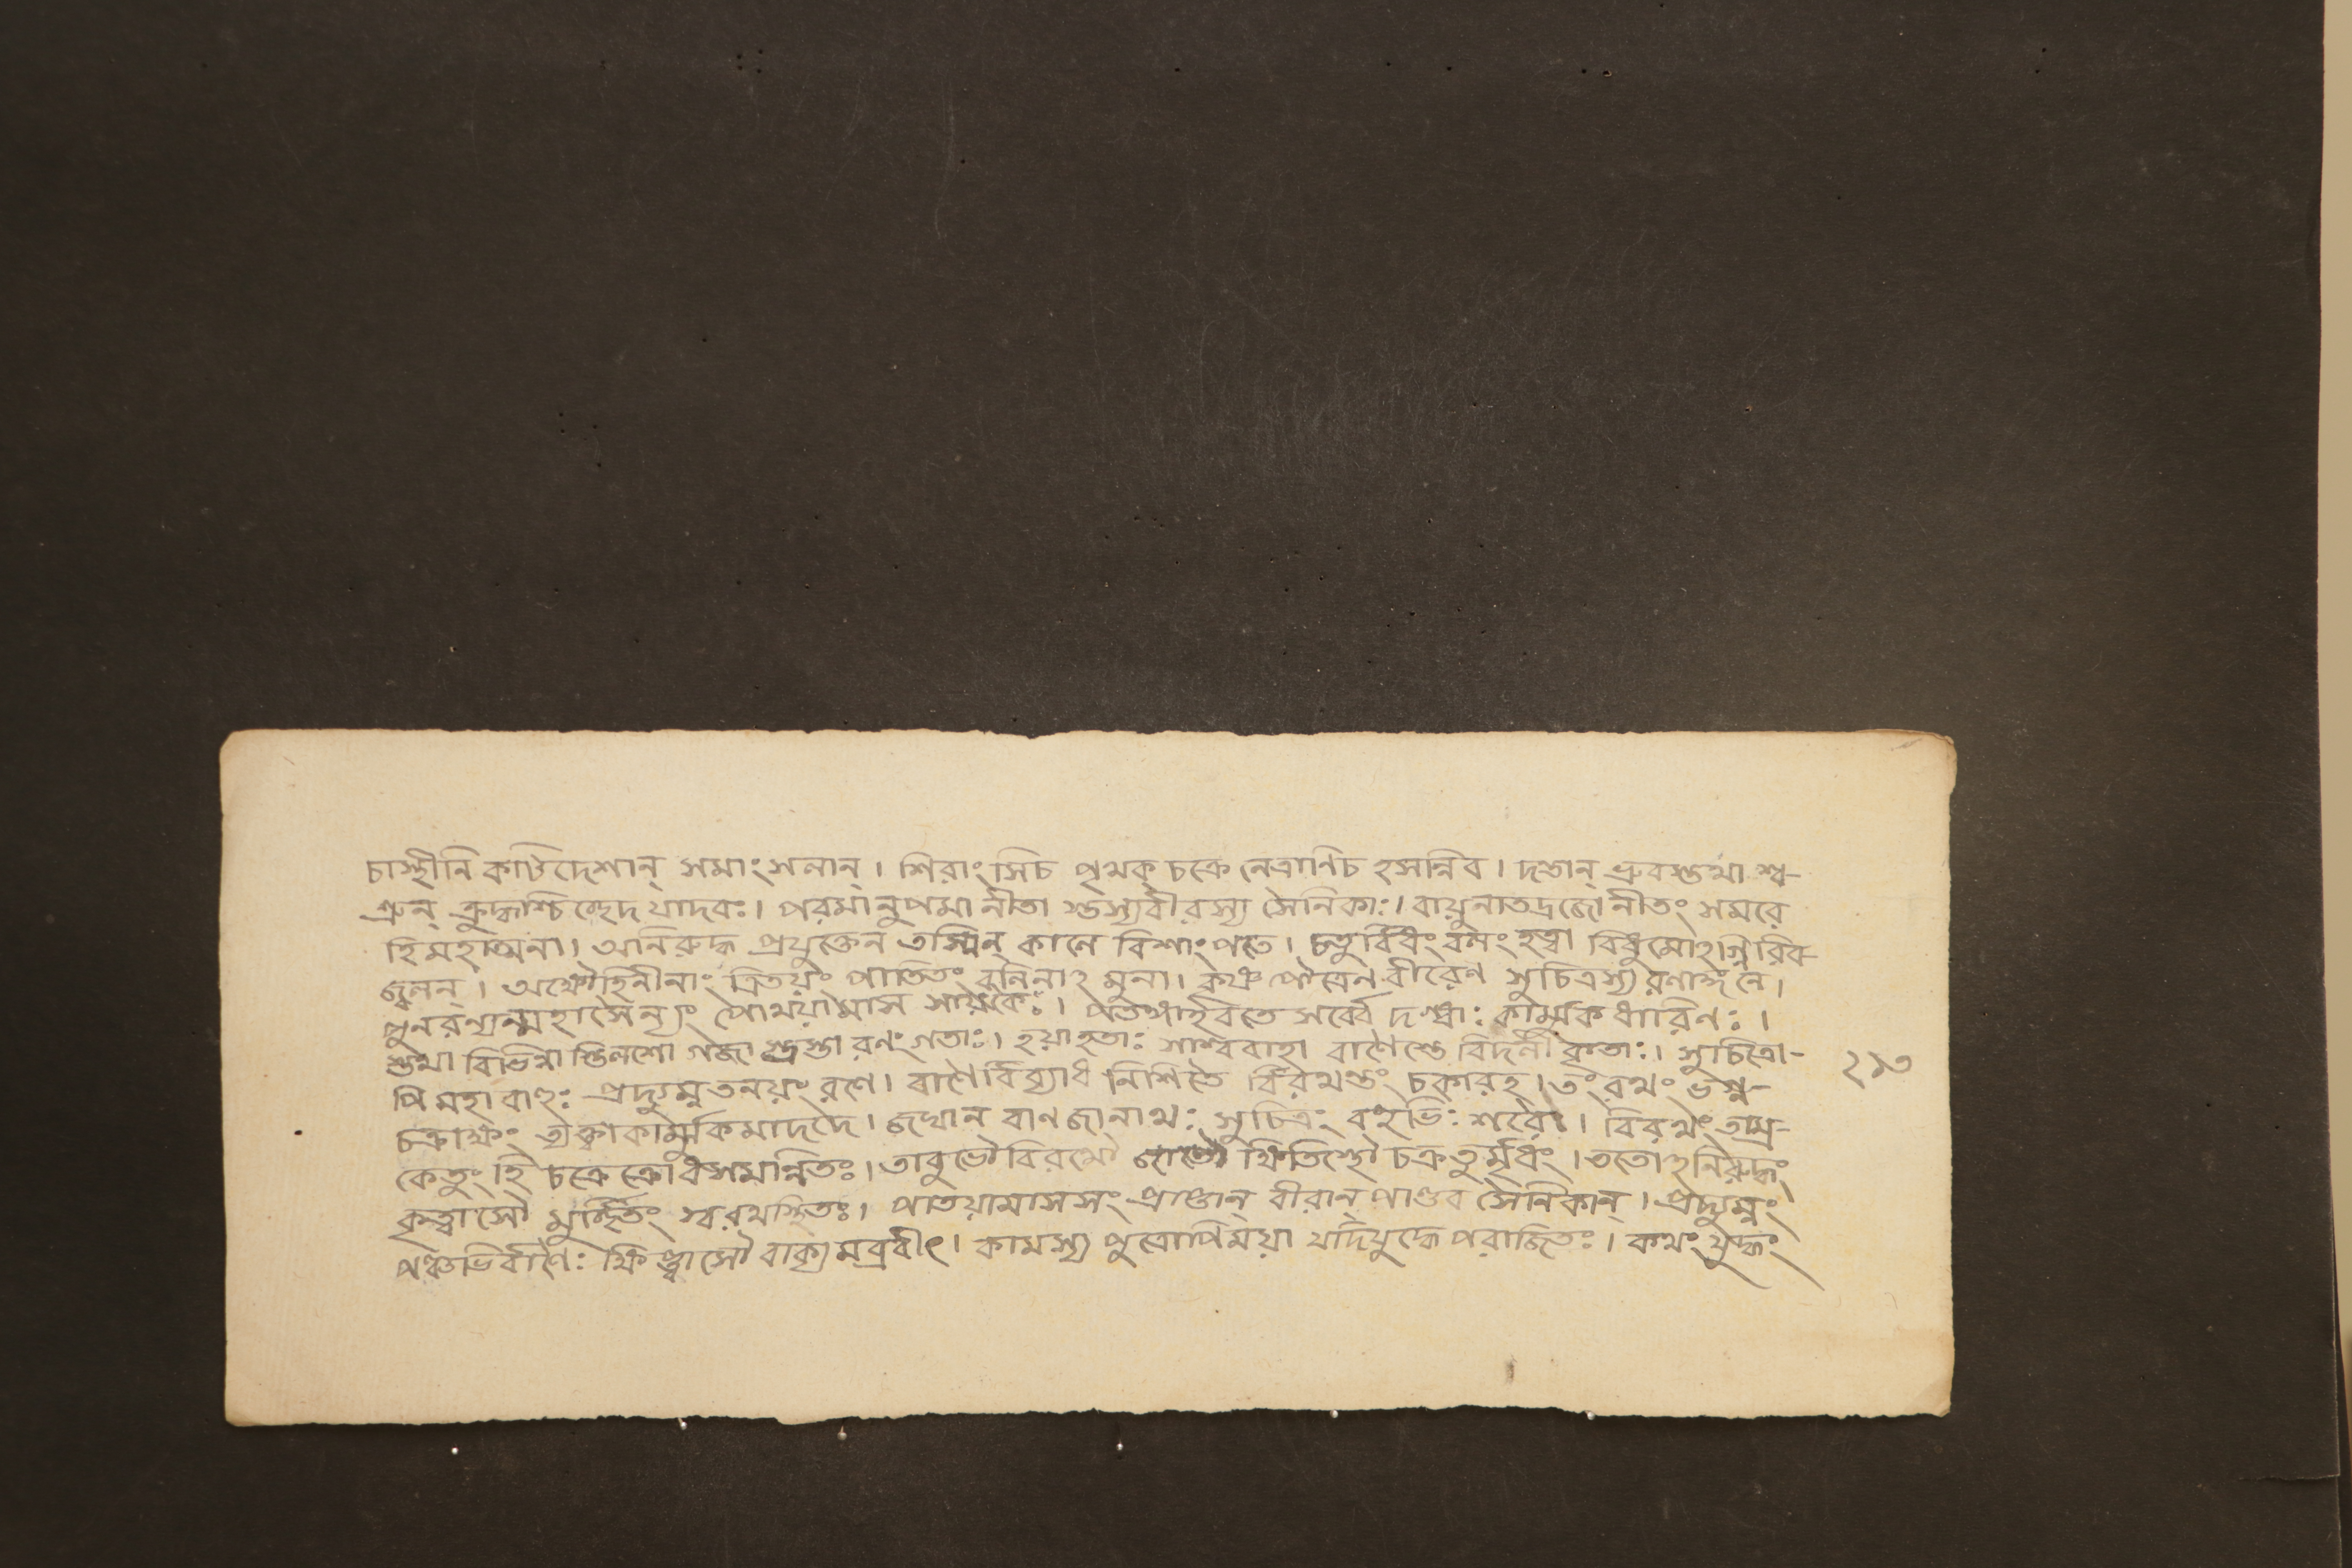 চাস্থীনি কটিদেশান্ সমাংসলান্। শিরাংসিচ পৃথক্ চক্রে নেত্রাণিচ হসন্নিব। দন্তান্ ভ্রুবস্তথা শ্ম-
শ্রুন্ ক্রুদ্ধশ্চিচ্ছেদ যাদবঃ। পরমানুপমা নীতা স্তস্যবীরস্য সৈনিকাঃ। বায়ুনাতদ্রজো নীতং সমরে
হিমহাত্মনা। অনিরুদ্ধ প্রযুক্তেন তস্মিন্ কালে বিশাংপতে। চতুর্ব্বিধং বলং হত্বা বিধুমোঽগ্নিরিব-
জ্বলন্। অক্ষৌহিনীনাং ত্রিতয়ং পাতিতং বলিনাঽমুনা। কৃষ্ণপৌত্রেণ বীরেণ সুচিত্রস্য রণাঙ্গনে।
পুনরন্যন্মহাসৈন্যং পোথয়ামাস সায়কৈঃ। পতঙ্গাইবতে সর্ব্বে দগ্ধাঃ কার্ম্মুকধারিণঃ।
স্তথা বিভিন্না স্তিলশো গজা স্ত্রস্তা রণং গতাঃ। হয়া হতাঃ সাশ্ববাহা বাণৈস্তে বিদলীকৃতাঃ। সুচিত্রো-
পি মহাবাহুঃ প্রদ্যুম্নতনয়ং রণে। বাণৈর্বিব্যাধ নিশিতৈ র্বিরথন্তং চকারহ। তং রথং ভগ্ন-
চক্রাক্ষং ত্যক্ত্বাকার্ম্মুকমাদদে। জঘান বাণজালাথঃ সুচিত্রং বহুভিঃ শরৈঃ। বিরথং তাম্র-
কেতুং হি চক্রে ক্রোধসমন্বিতঃ। তাবুভৌ বিরথৌ জাতৌ ক্ষিতিস্থৌ চক্রতুর্মৃধং। ততোঽনিরুদ্ধং
কৃত্বাসৌ মুর্চ্ছিতং স্বরথস্থিতঃ। পাতয়ামাস সং প্রাপ্তান্ বীরান্ পাণ্ডব সৈনিকান্। প্রদ্যুম্নং
পঞ্চভির্বাণৈঃ ক্ষিপ্ত্বাসৌ বাক্যমব্রবীৎ। কামস্য পুত্রোপিময়া যদিযুদ্ধে পরাজিতঃ। কথং যুদ্ধং
২১৩